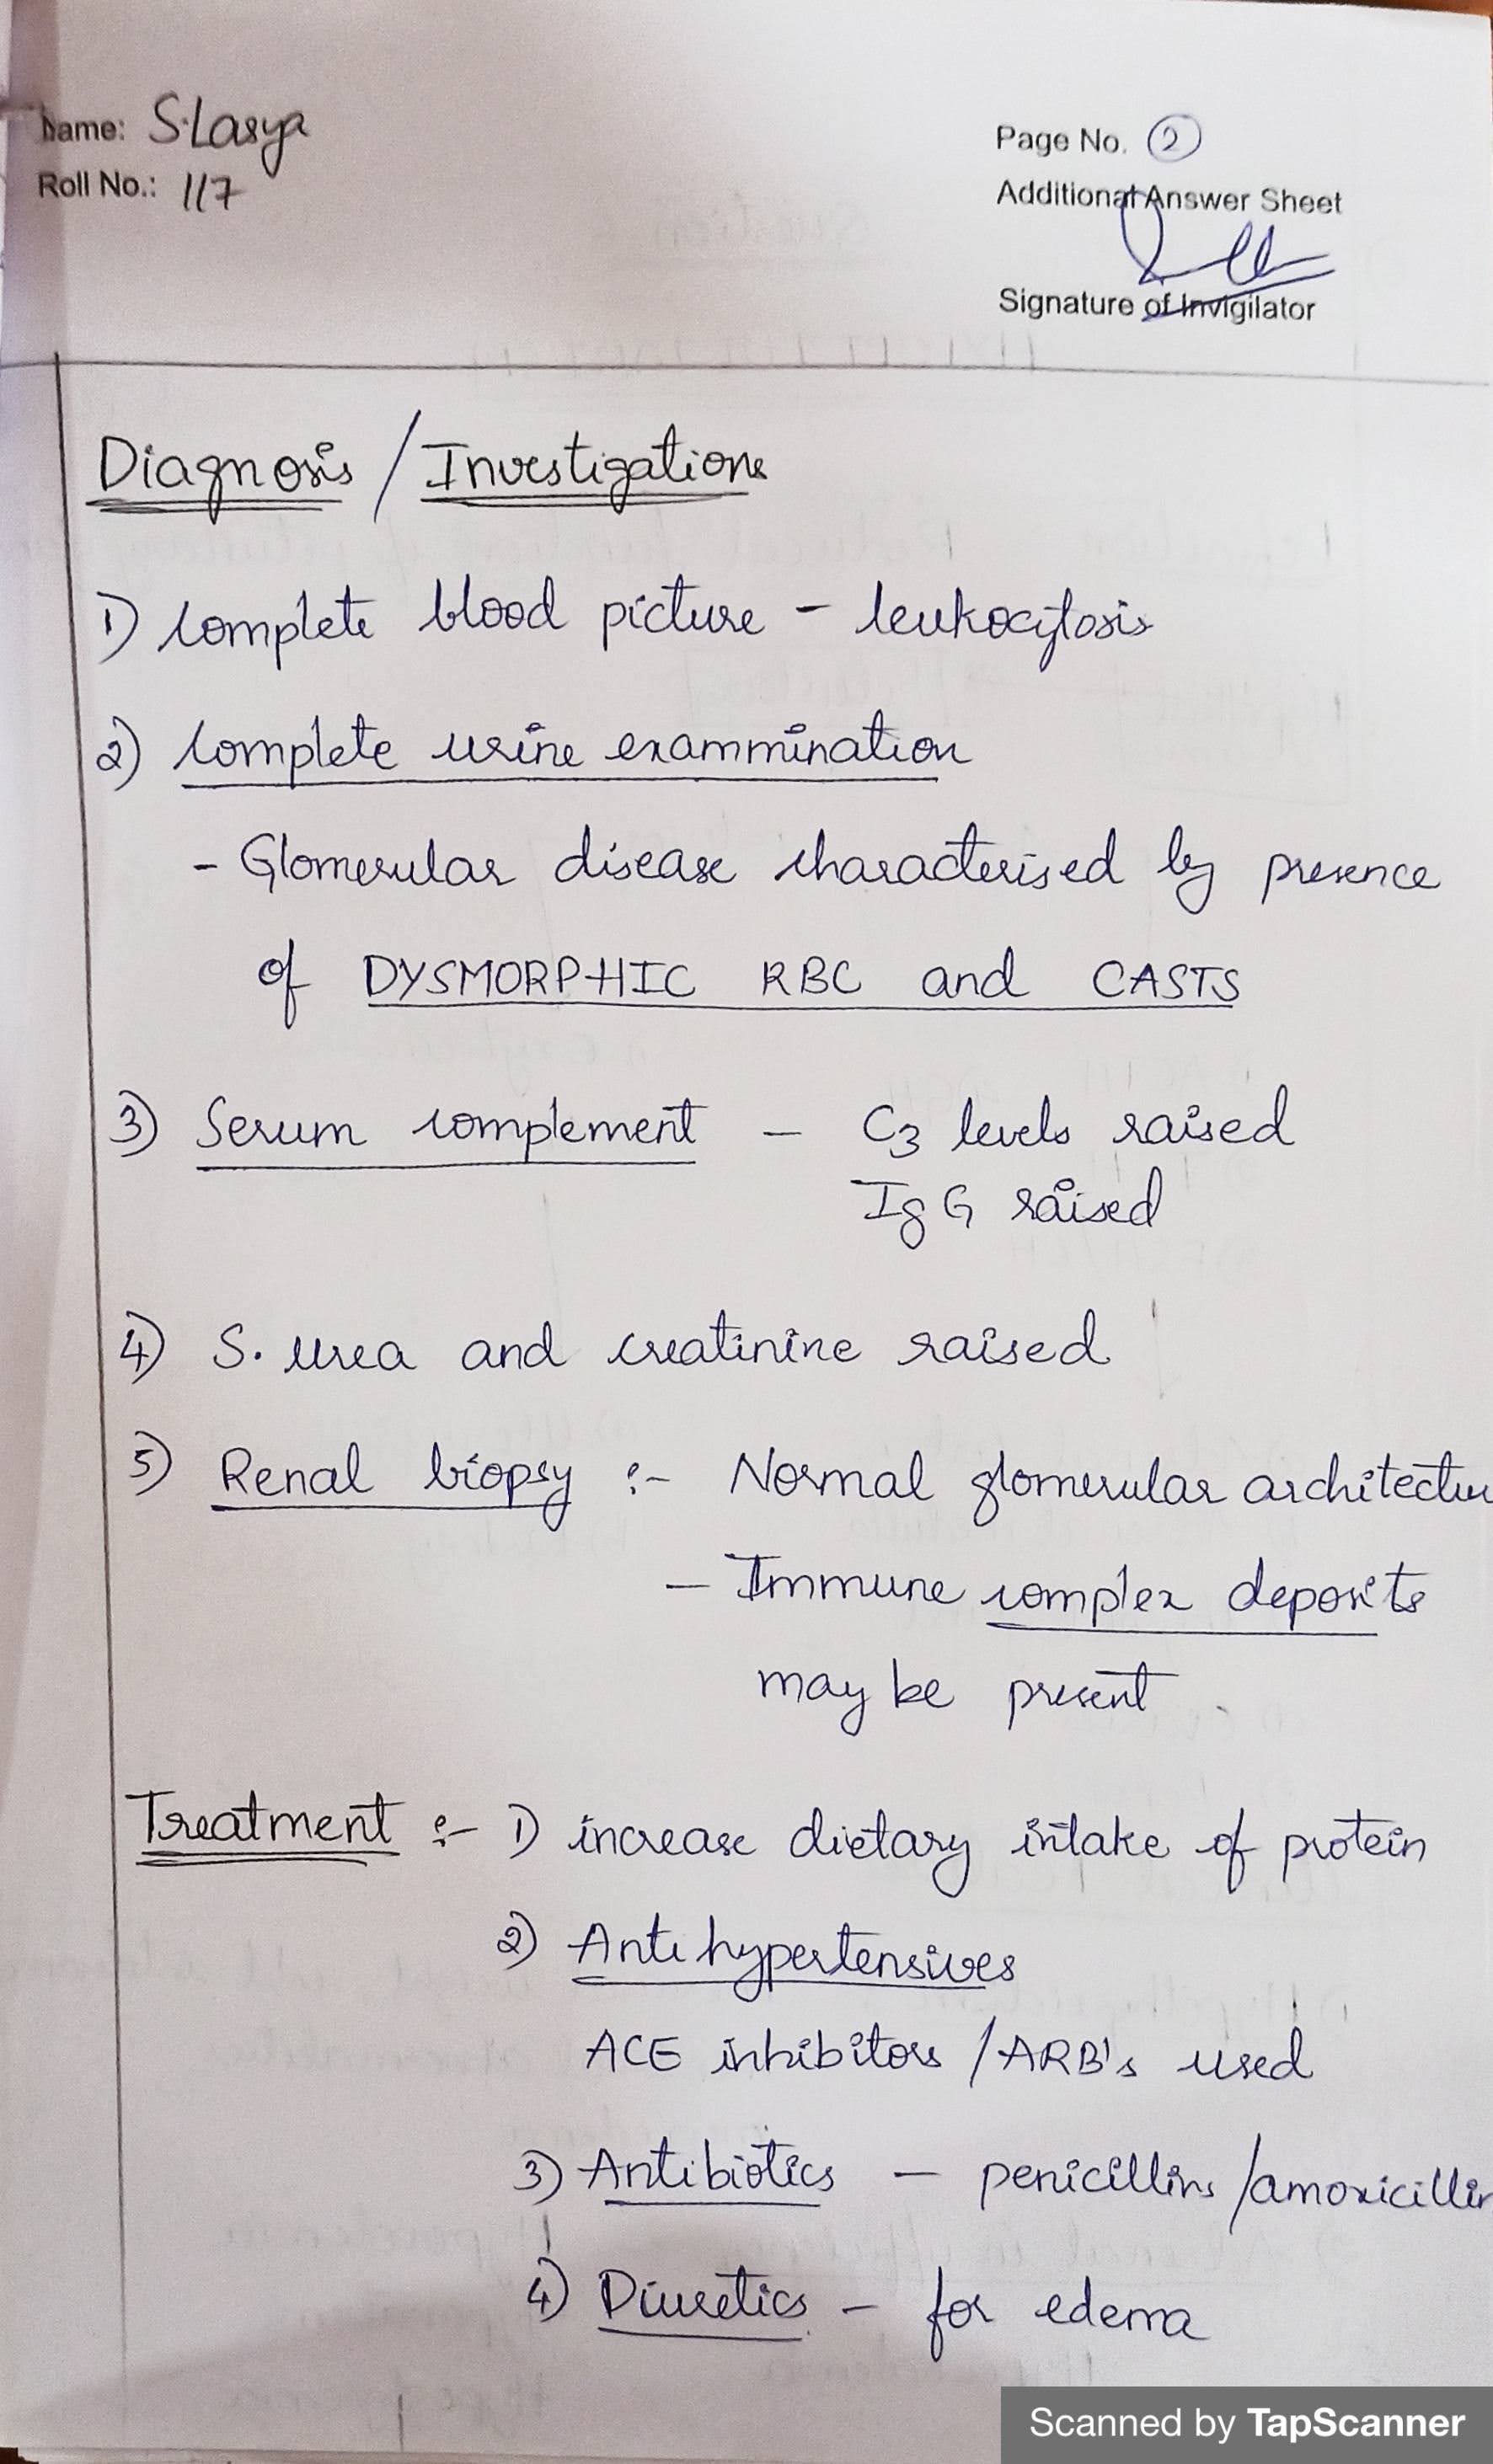 Name: S.Lasya
Roll No.: 117
Page No. 2
Additional Answer Sheet
Signature of Invigilator
Diagnosis / Investigations
1) complete blood picture - leukocytosis
2) complete urine exammination
- Glomerular disease characterised by presence
of DYSMORPHIC RBC and CASTS
3) Serum complement - C3 levels raised
IgG raised
4) S. urea and creatinine raised
5) Renal biopsy :- Normal glomerular architectu
- Immune complex deposits
may be present.
Treatment :- 1) increase dietary intake of protein
2) Antihypertensives
ACE inhibitors / ARB's used
3) Antibiotics - penicillins /amoxicillin
4) Diuretics - for edema
Scanned by TapScanner